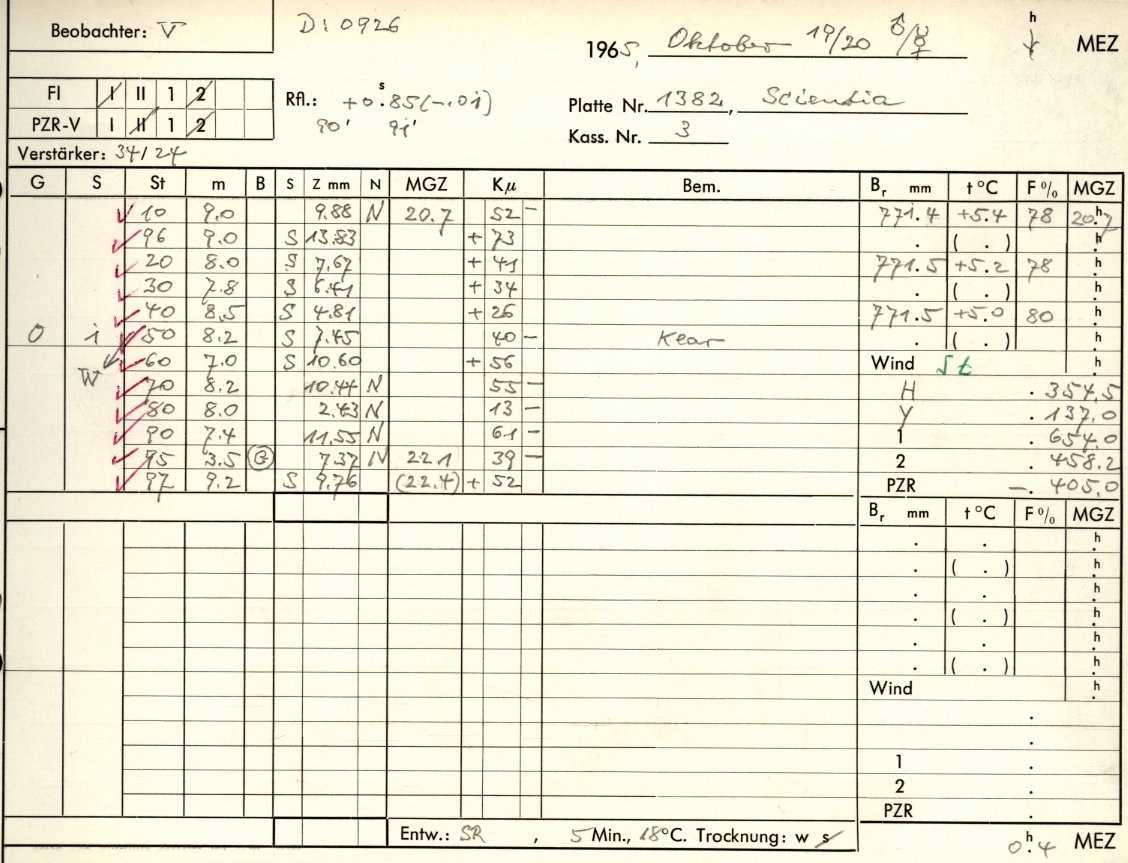 Beobachter: V
D: 0926
1965, Oktober 19/20 ♂/☿
h
MEZ
FI I II 1 2
PZR-V I II 1 2
Rfl.: +0.s85(-.01)
90' 91'
Platte Nr. 1382, Scientia
Kass. Nr. 3
Verstärker: 34/24
G S St m B S Z mm N MGZ Kμ Bem. Br mm t °C F % MGZ
10 9.0 9.88 N 20.7 52 - 771.4 +5.4 78 20.h7
96 9.0 S 13.83 + 73 . ( . ) h
20 8.0 S 7.67 + 41 771.5 +5.2 78 h
30 7.8 S 6.41 + 34 . ( . ) h
40 8.5 S 4.81 + 26 771.5 +5.0 80 h
0 i 50 8.2 S 7.45 40 - klar . ( . ) h
W 60 7.0 S 10.60 + 56 Wind St h
70 8.2 10.44 N 55 - H . 354.5
80 8.0 2.43 N 13 - Y . 137.0
90 7.4 11.55 N 61 - 1 . 654.0
95 3.5 G 7.37 N 22.1 39 - 2 . 458.2
97 9.2 S 9.76 (22.4) + 52 PZR -. 405.0
Br mm t °C F % MGZ
. . h
. ( . ) h
. . h
. ( . ) h
. . h
. ( . ) h
Wind h
.
.
1 .
2 .
PZR .
Entw.: SR , 5 Min., 18°C. Trocknung: w s
0.h4 MEZ